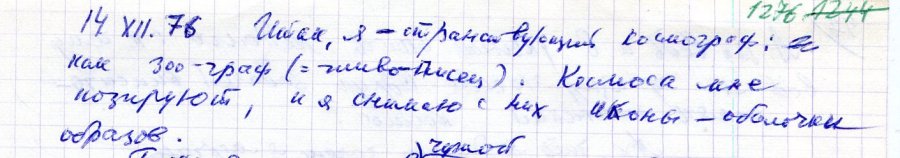 1276 1244
14 XII. 76 Итак, я – странствующий космограф: и
как зоо-граф (= живо-писец). Космоса мне
позируют, и я снимаю с них иконы – оболочки
образов.
чужой